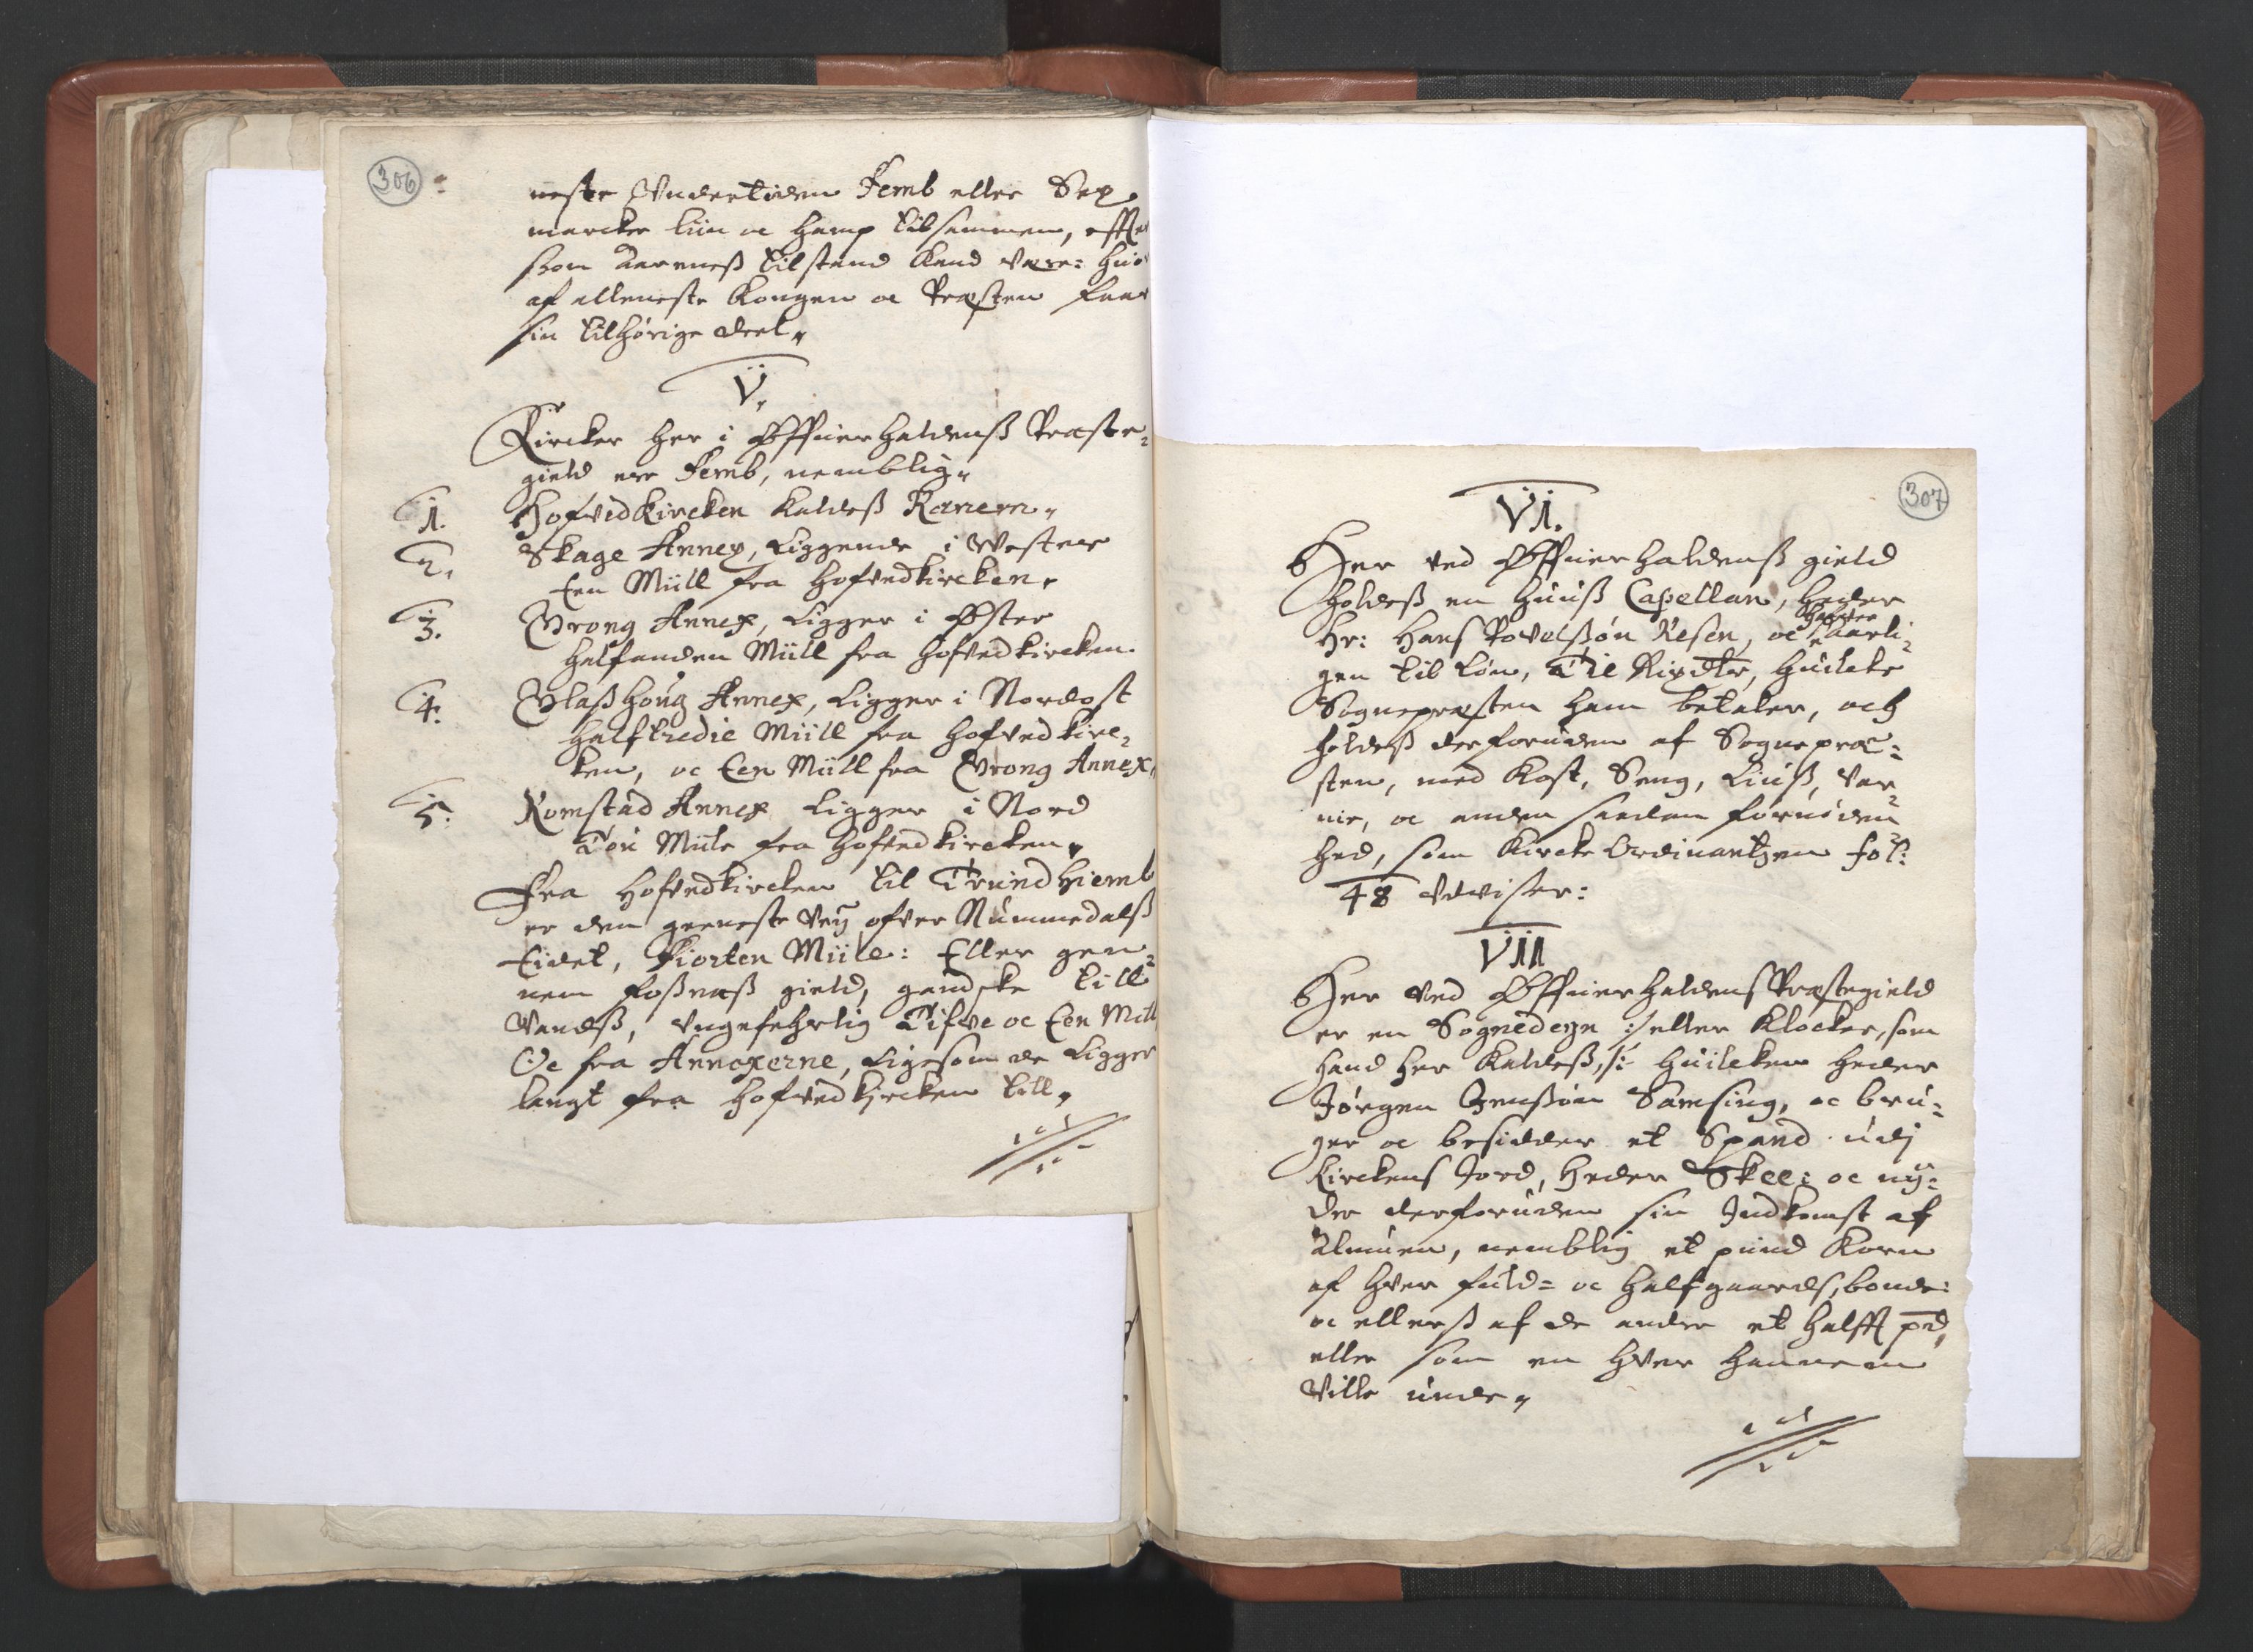 306
neste Undertiden Femb eller Sex
marcker liin oc hamp tilsammen, effter
som Aarenes tilstand kand være: huor
af alleneste Kongen oc Præsten faar
sin tilhørige deel,
V.
Kircker her i Offuerhaldenß Præste-
gield ere Femb, nemblig,
1. Hofvedkircken kaldeß Ranem,
2. Skage Annex, Liggende i Wester
Een Miill fra Hofvedkircken,
3. Vrong Annex, Ligger i Øster
halfanden Miill fra hofvedkircken.
4. Vlaßhoug Annex, Ligger i Nordost
halftredie Miill fra hofvedkirc-
ken, oc Een Miill fra Vrong Annex,
5. Romstad Annex Ligger i Nord
Tou Miile fra hofvedkircken,
Fra Hofvedkircken til Trundhiemb
er den geeneste Vey ofver Nummedalß
Eidet, Fiorten Miile: Eller gen-
nem Foßneß gield, gandske till
Vandß, ungefehrlig Tifve oc Een Miil
Oc fra Annexerne, Ligesom de Ligger
langt fra hofvedkircken till,
307
VI.
Her ved Offuerhaldenß gield
holdeß en Huuß Capellan, heder
Hr: Hans Povelßøn Resen, oc hafver Aarli-
gen til Løn, Tie Rixdlr, huilcke
Sognepræsten ham betaler, och
holdeß derforuden af Sognepræ-
sten, med Kost, Seng, Liuß, Var-
me, oc anden saadan fornøden
hed, som Kircke Ordinantzen fol:
48 udviser:
VII
Her ved Offuerhaldens Præstegield
er en Sognedegn :/ eller Klocker, som
hand her kaldeß, /: huilcken heder
Jørgen Jenßøn Samsing, oc bru-
ger oc besidder et Spand udj
Kirckens Jord, heder Skee: oc ny-
der derforuden sin Indkomst af
Almuen, nemblig et pund Korn
af hver fuld= oc halfgaards bonde:
oc ellerß af de andre et halfft pd,
eller som en hver hannem
Ville unde,